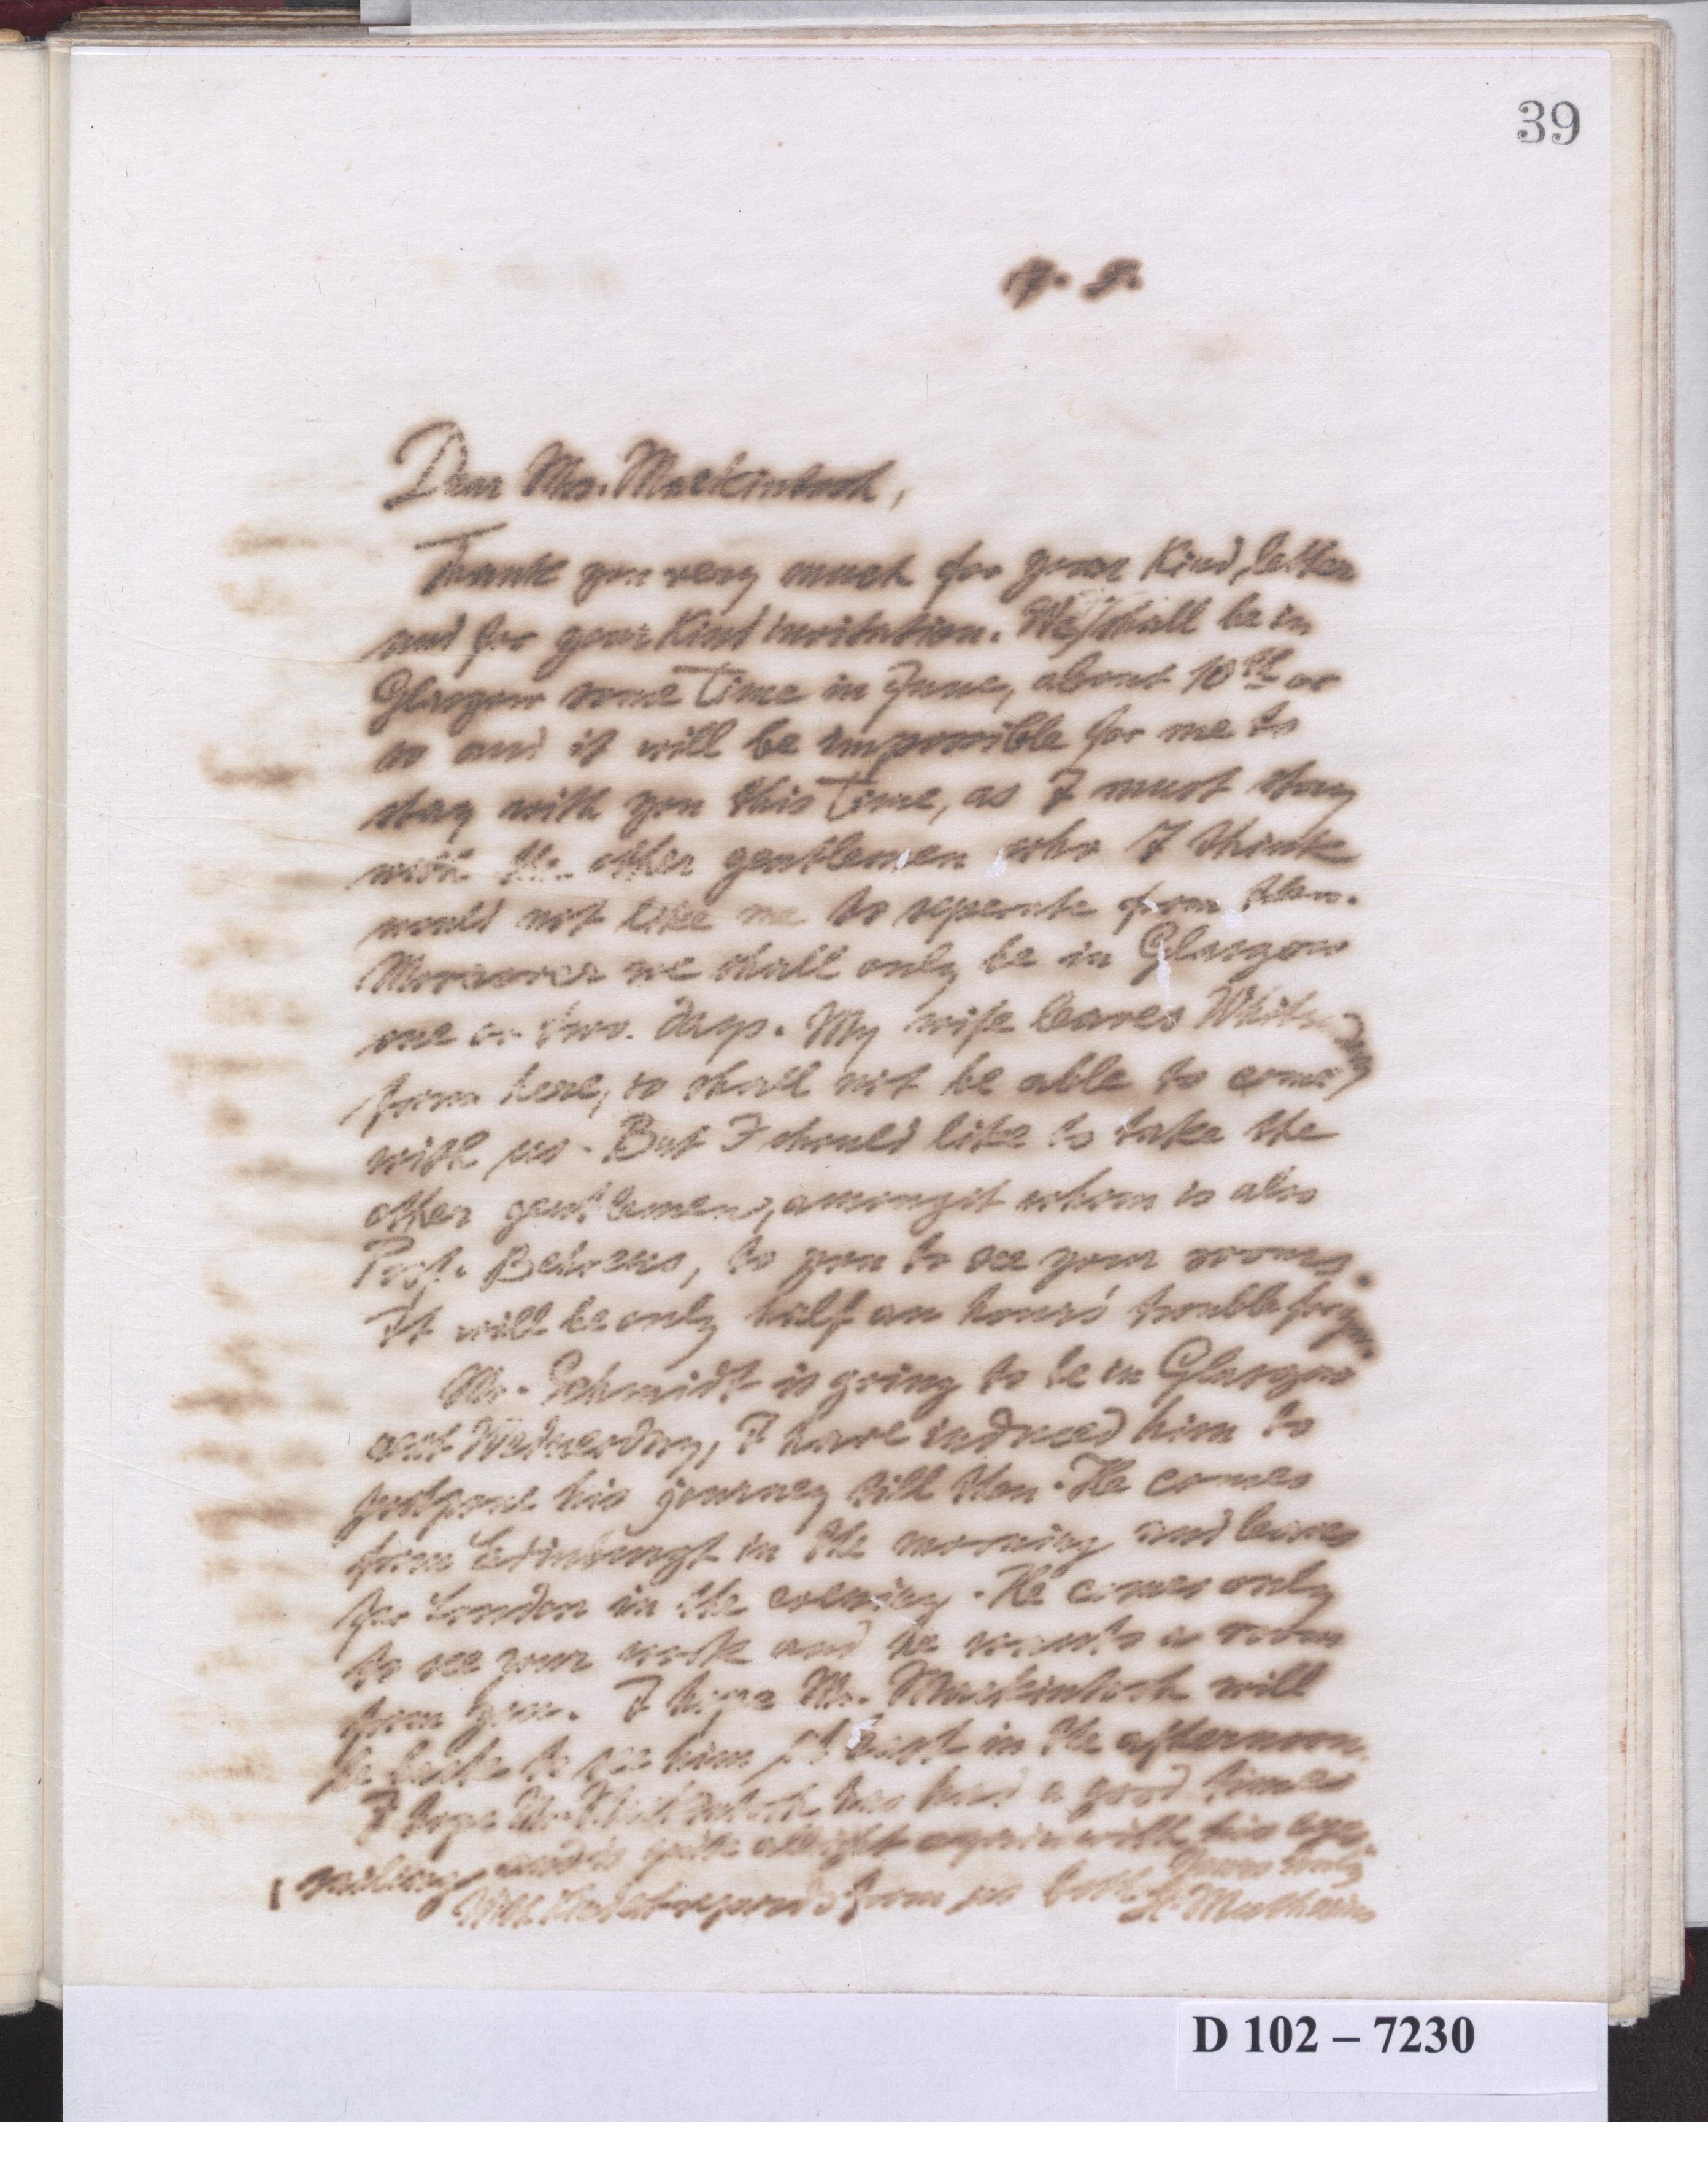 39
Dear Mrs. Mackintosh,
Thank you very much for your kind letter
and for your kind invitation. We shall be in
Glasgow some time in June, about 10th or
so and it will be impossible for me to
stay with you this time, as I must stay
with the other gentlemen who I think
would not like me to seperate from them.
Moreover we shall only be in Glasgow
one or two days. My wife leaves Whitsunday
from here, so shall not be able to come
with us. But I should like to take the
other gentlemen, amongst whom is also
Prof. Behrens, to you to see your rooms.
It will be only half an hours' trouble for you.
Mr. Schmidt is going to be in Glasgow
next Wednesday, I have induced him to
postpone his journey till then. He comes
from Edinburgh in the morning and leaves
for London in the evening. He comes only
to see your work and he wants a room
from you. I hope Mr. Mackintosh will
be able to see him at least in the afternoon.
I hope Mr. Mackintosh has had a good time
and is quite allright again with his eye.
With kindest regards from us both
Yours truly
H. Muthesius
D 102 – 7230